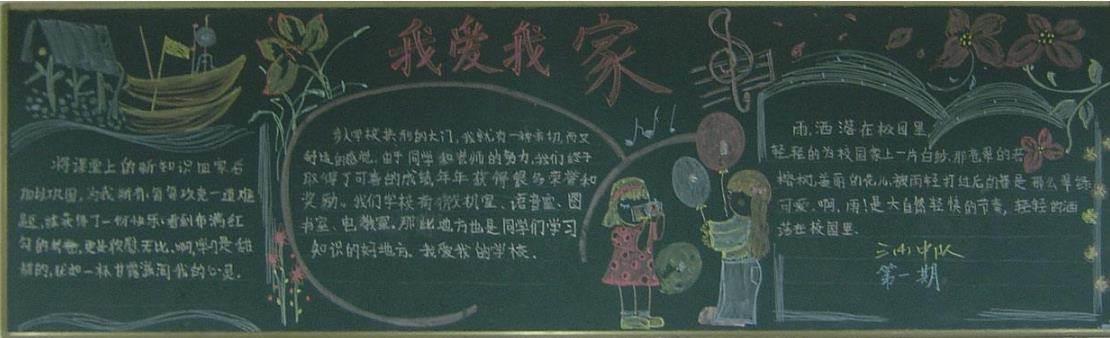 我爱我家
将课堂上的新知识回家后
加以巩固,为我所有,皆努攻克一道难
题,就获得了一份快乐,看到布满红
勾的考卷,更是欣慰无比,啊,学习是甜
甜的,犹如一杯甘露滋润我的心灵.
步入学校拱形的大门,我就有一种亲切,而又
舒适的感觉.由于同学和老师的努力,我们终于
取得了可喜的成绩,年年获得很多荣誉和
奖励.我们学校有微机室、语音室、图
书室、电教室,那些地方也是同学们学习
知识的好地方.我爱我的学校.
雨,洒落在校园里,
轻轻的为校园蒙上一片白纱,那苍翠的老
榕树,美丽的花儿,被雨轻打过后的都是那么翠绿
可爱.啊,雨!是大自然轻快的节奏,轻轻的洒
落在校园里.
三(4)中队
第一期